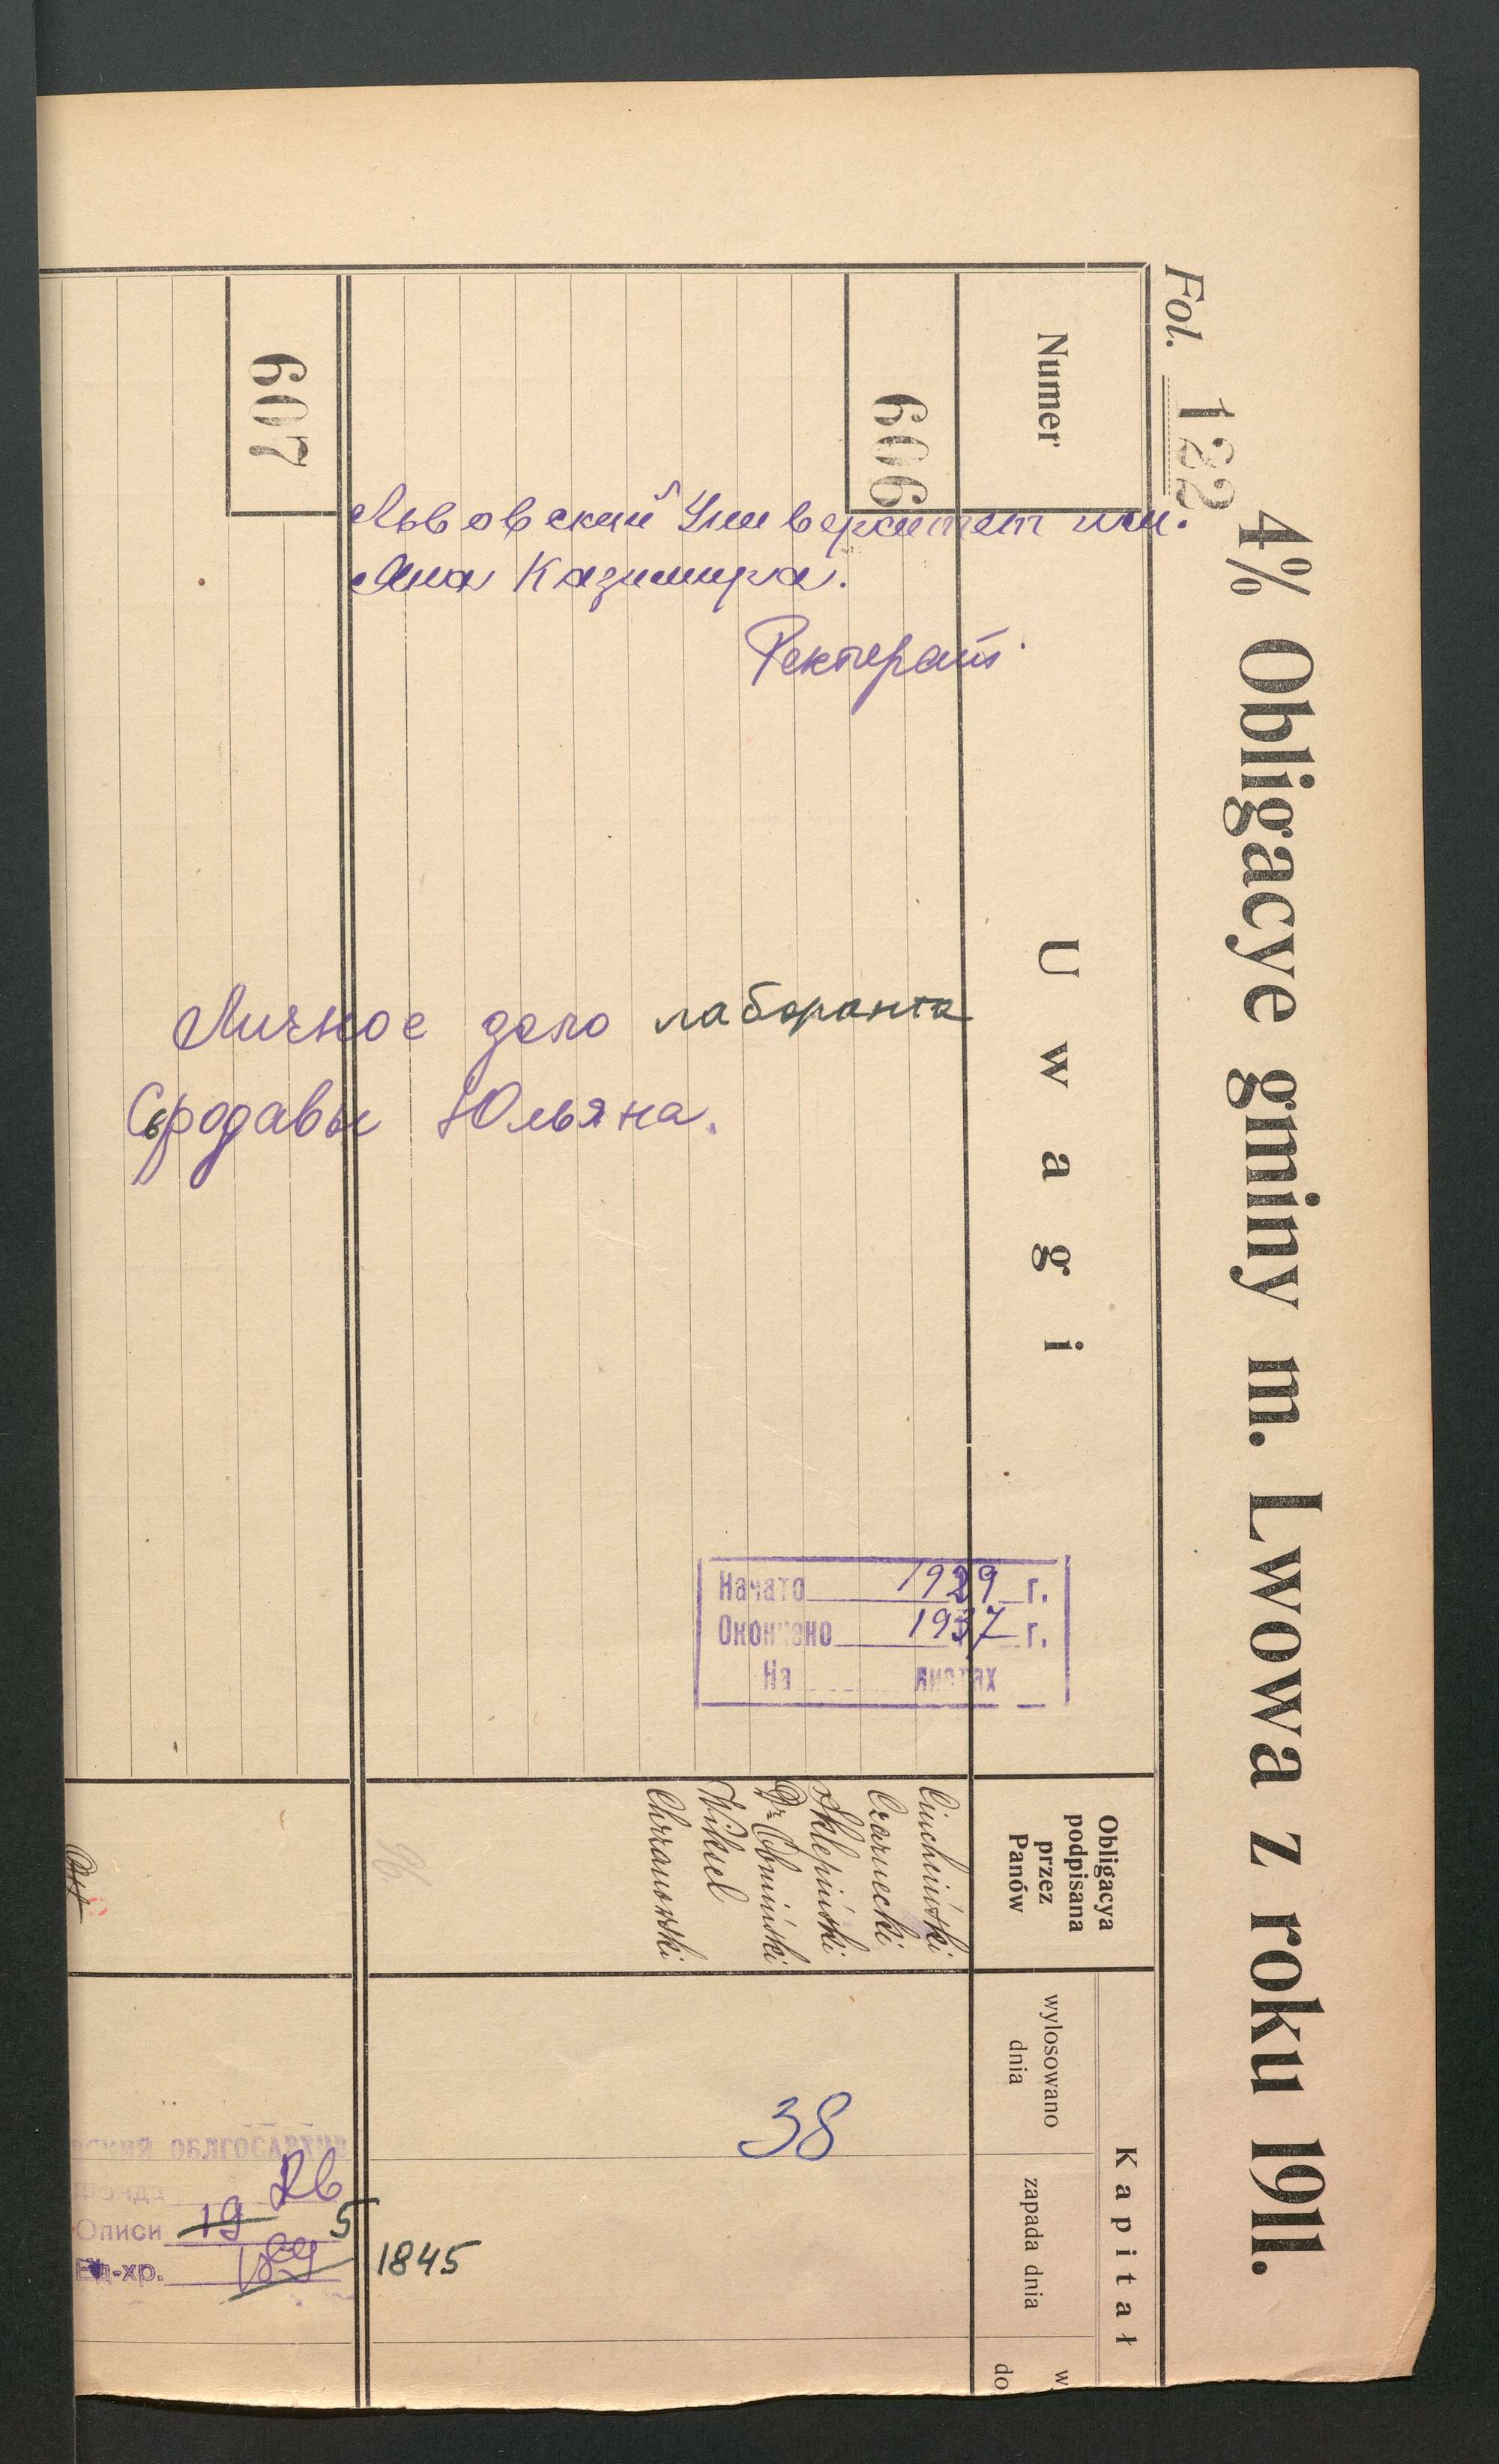 4% Obligacye gminy m. Lwowa z roku 1911.
Fol. 122
Numer
U w a g i
Obligacya
podpisana
przez
Panów
K a p i t a ł
wylosowano
dnia
zapada dnia
w
do
606
607
Львовский Университет им.
Яна Казимира.
Ректорат.
Личное дело лаборанта
Сродавы Юльяна.
Начато 1929 г.
Окончено 1937 г.
На листах
Ciuchciński
Czarnecki
Sklepiński
Dr. Obmiński
Winkel
Chrzanowski
38
ВСКИЙ ОБЛГОСАРХИВ
Фонда 26
Описи 19 5
Ед-хр.
1845